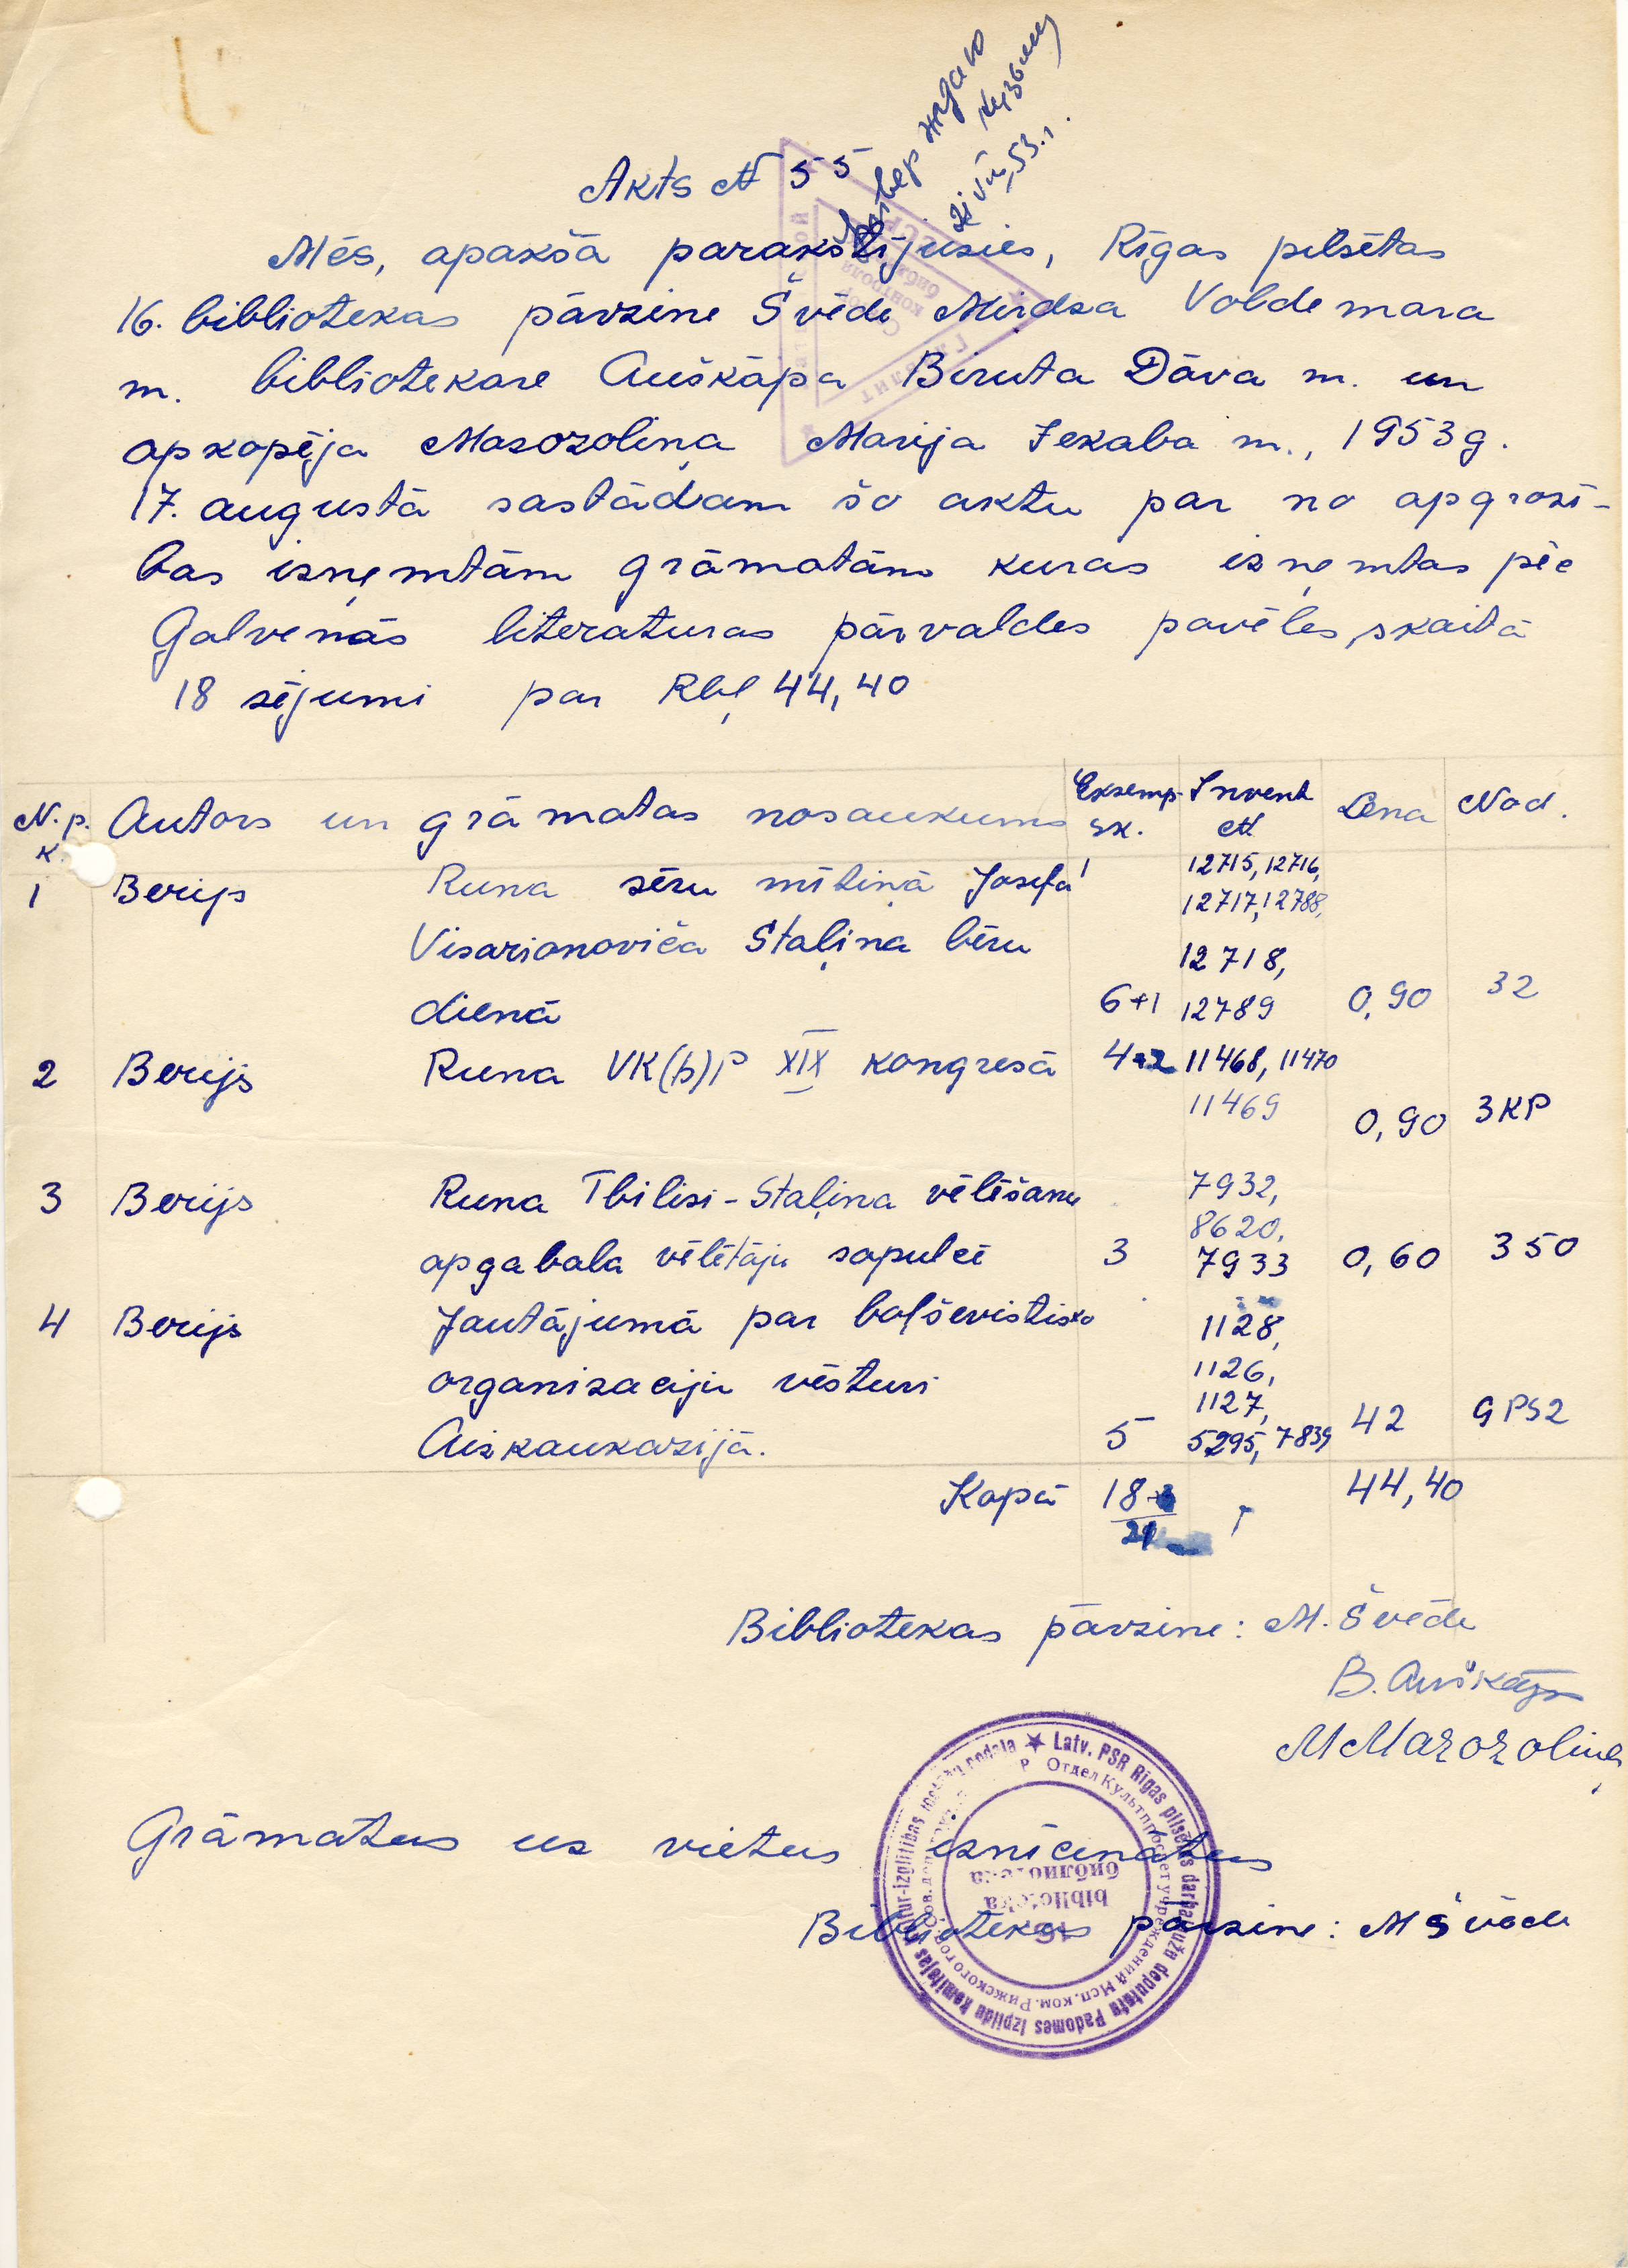 Akts № 55
Mēs, apakšā parakstijušies, Rīgas pilsētas
16. bibliotekas pārzine Švēde Mirdza Voldemara
m. bibliotekare Auškāpa Biruta Dāva m. un
apkopēja Mazozoliņa Marija Jekaba m., 1953 g.
17. augustā sastādam šo aktu par no apgrozī-
bas izņemtām grāmatām kuras izņemtas pēc
Galvenās literaturas pārvaldes pavēles, skaitā
18 sējumi par Rbļ 44,40
N. p. k. Autors un grāmatas nosaukums Eksemp. sk. Invent № Cena Nod.
1 Berijs Runa sēru mītiņā Josifa 12715, 12716,
12717, 12788,
Visarionoviča Staļina bēru 12718,
dienā 6+1 12789 0,90 32
2 Berijs Runa VK(b)P XIX kongresā 4+2 11468, 11470
11469 0,90 3KP
3 Berijs Runa Tbilisi-Staļina vēlēšanu 7932,
8620,
apgabala vēlētāju sapulcē 3 7933 0,60 350
4 Berijs Jautājumā par boļševistisko 1128,
organizaciju vēsturi 1126,
1127,
Aizkaukazijā. 5 5295, 7839 42 9PS2
Kopā 18 44,40
21
Bibliotekas pārzine: M. Švēde
B. Auškāpa
M Mazozoliņa
Latv. PSR Rīgas pilsētas darbaļaužu deputatu Padomes Izpildu komitejas kultur-izglitibas iestāžu nodaļa
Отдел Культпросвет учреждений Исп. ком. Рижского гор. Сов.
библиотека
bibliotēka
16
Grāmatas uz vietas iznīcinātas
Bibliotekas pārzine: M Švēde